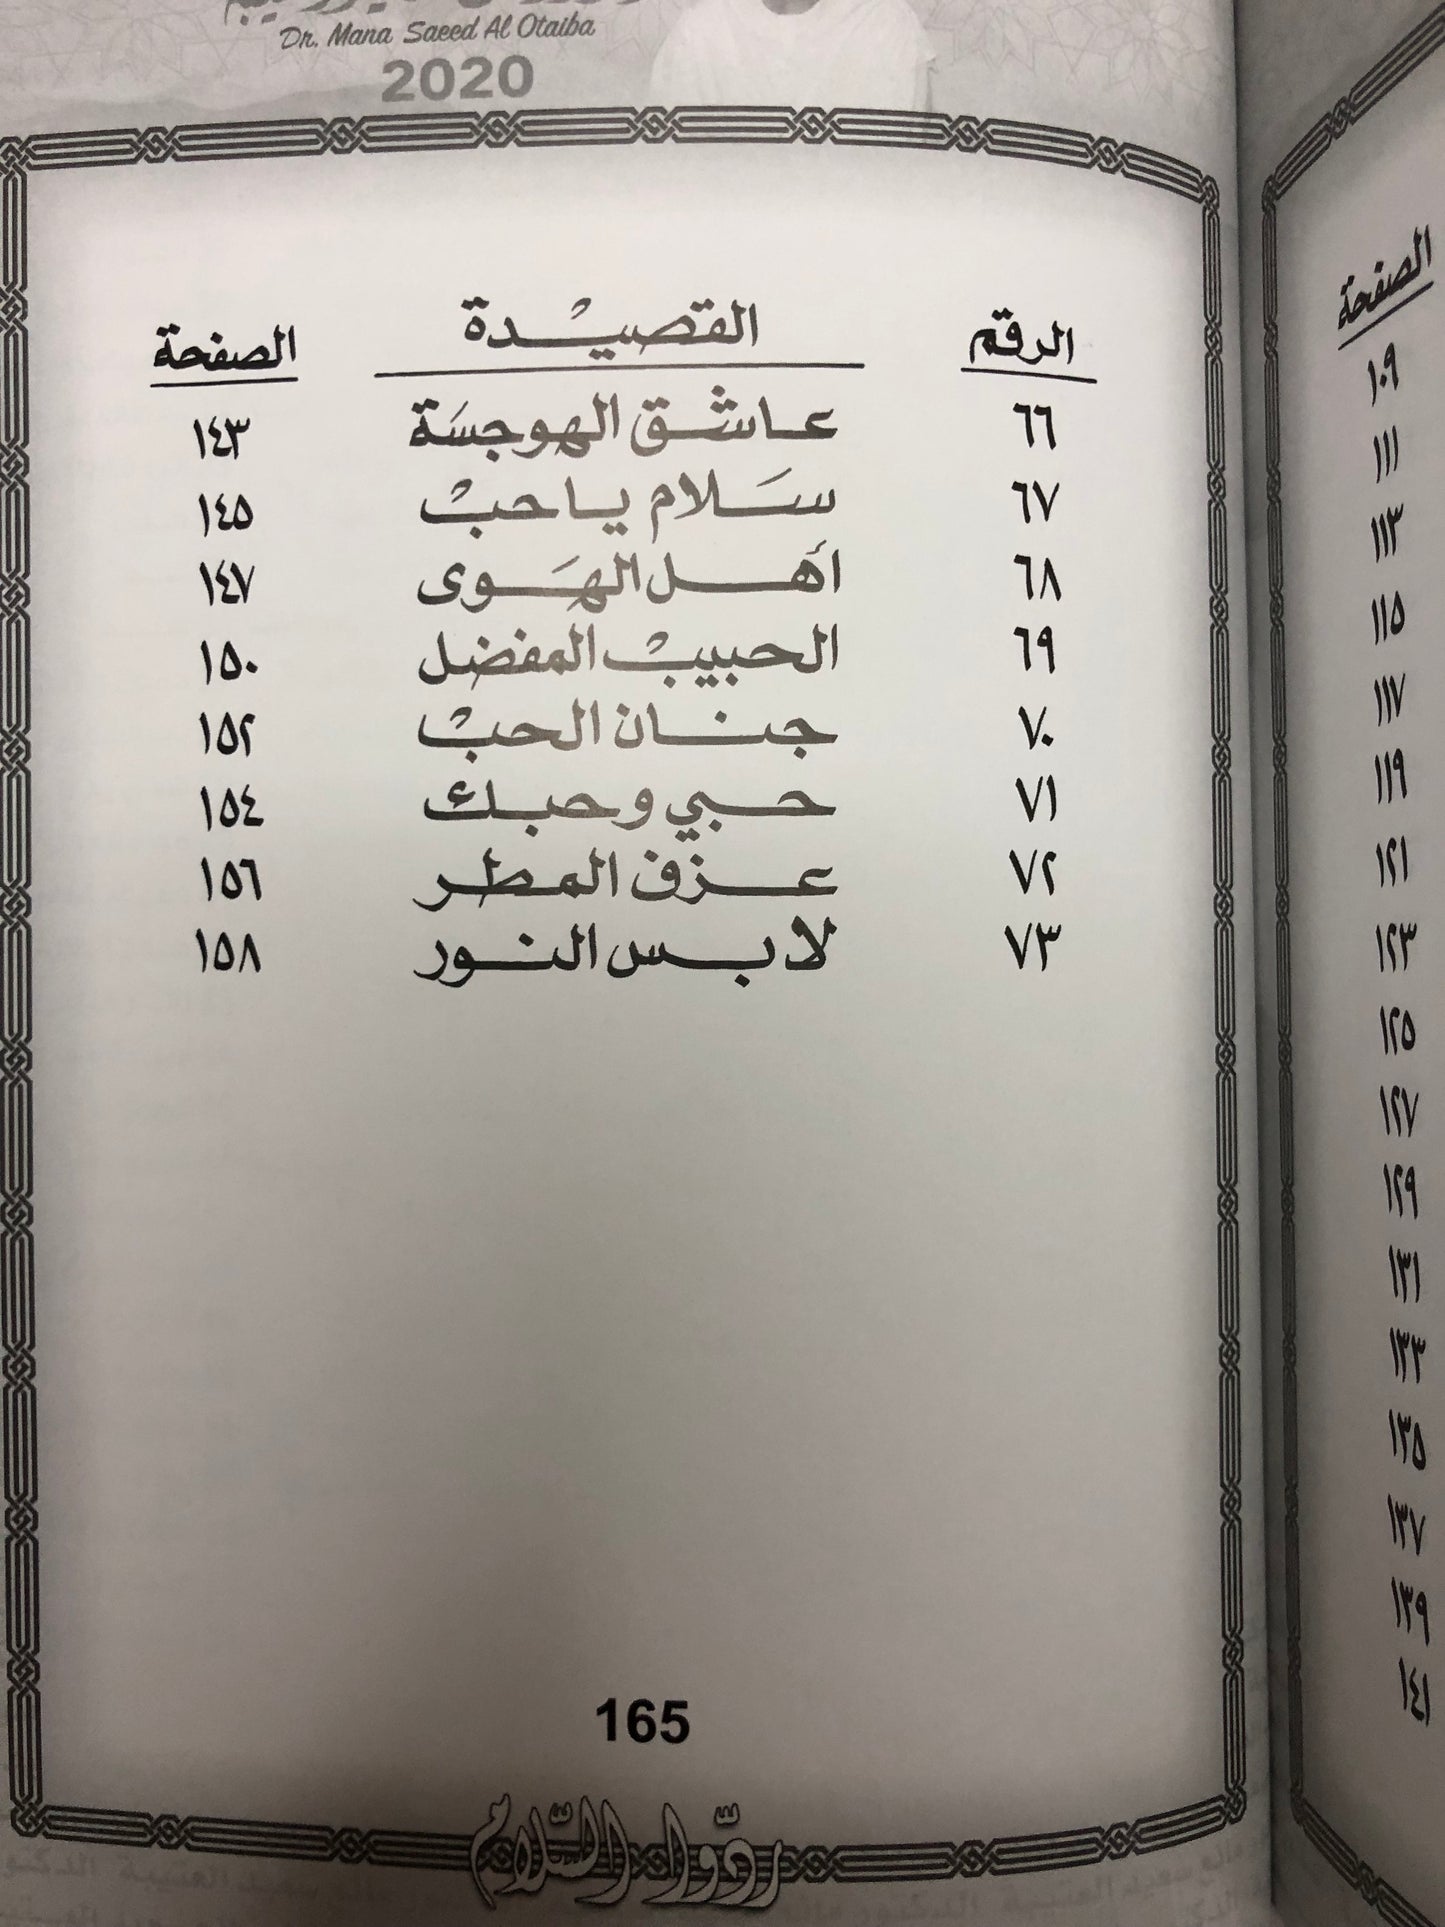 Dr. Mana Saeed Al Otaiba
2020
الرقم القصيدة الصفحة
٦٦ عاشق الهوجسَة ١٤٣
٦٧ سَلام ياحبْ ١٤٥
٦٨ أهل الهَوى ١٤٧
٦٩ الحبيبْ المفضل ١٥٠
٧٠ جنان الحبْ ١٥٢
٧١ حبي وحبك ١٥٤
٧٢ عزف المطر ١٥٦
٧٣ لابس النور ١٥٨
165
ردّوا السّلام
الصفحة
١٠٩
١١١
١١٣
١١٥
١١٧
١١٩
١٢١
١٢٣
١٢٥
١٢٧
١٢٩
١٣١
١٣٣
١٣٥
١٣٧
١٣٩
١٤١